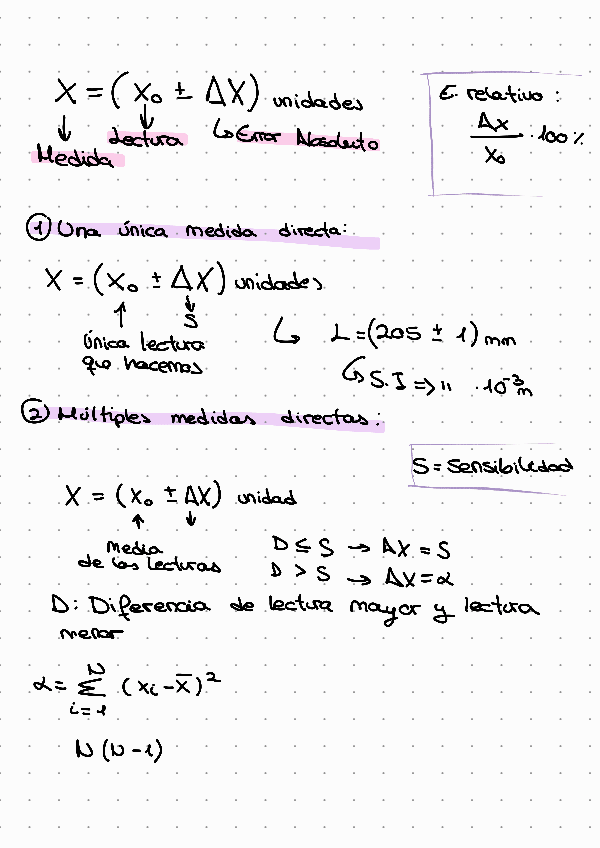 X = (x₀ ± ΔX) unidades
Medida
Lectura
↳ Error Absoluto
E. relativo:
Δx / x₀ · 100%
① Una única medida directa:
X = (x₀ ± ΔX) unidades
S
única lectura
que hacemos
↳ L = (205 ± 1) mm
↳ S.I => " · 10⁻³ m
② Múltiples medidas directas:
S = sensibilidad
X = (x₀ ± ΔX) unidad
Media
de las lecturas
D ≤ S → ΔX = S
D > S → ΔX = α
D: Diferencia de lectura mayor y lectura
menor
α = Σ (xi - x̄)²
N
i = 1
N (N - 1)